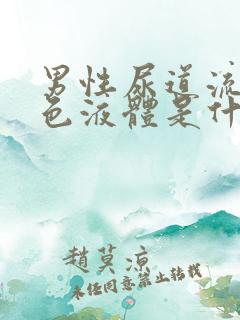 男性尿道流
色液體是什
趙莫涼
未经同意禁止转载